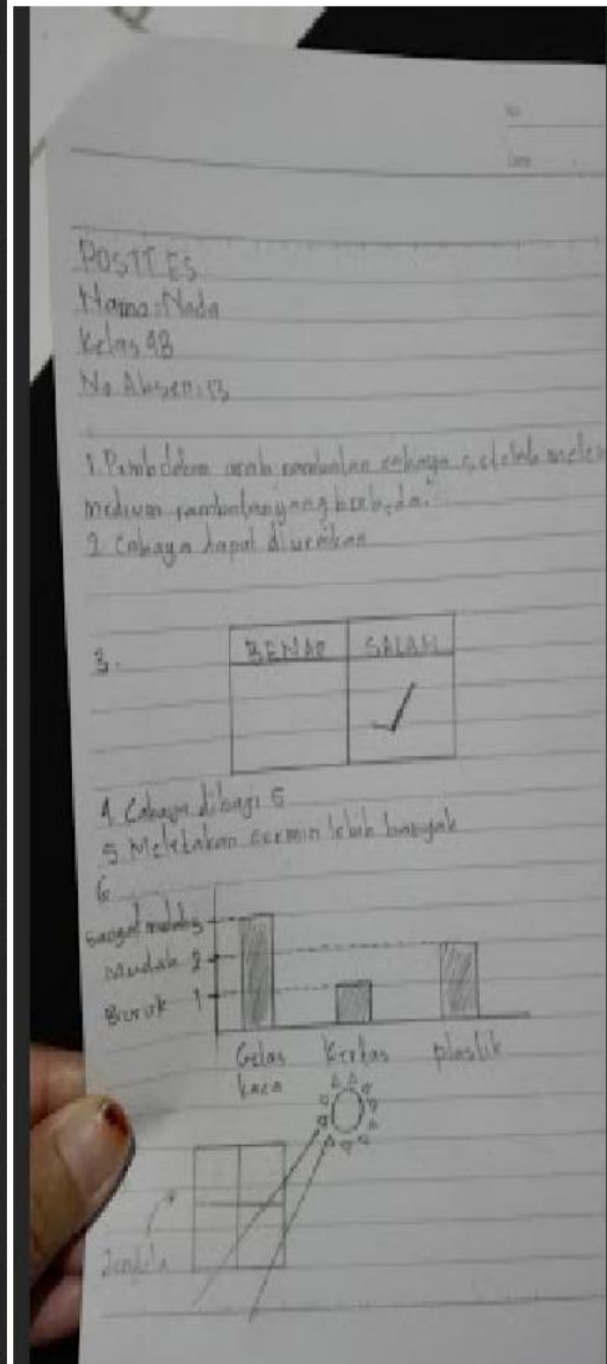 No
Date
POSTTES
Nama: Nada
Kelas 4B
No Absen: 13
1. Pembelokan arah rambatan cahaya setelah
medium rambatan yang berbeda.
2 Cahaya dapat diuraikan
3. BENAR SALAH
4 Cahaya dibagi 5
5 Meletakan cermin lebih banyak
6
Sangat mudah 3
Mudah 2
Buruk 1
Gelas kaca Kertas plastik
Jendela